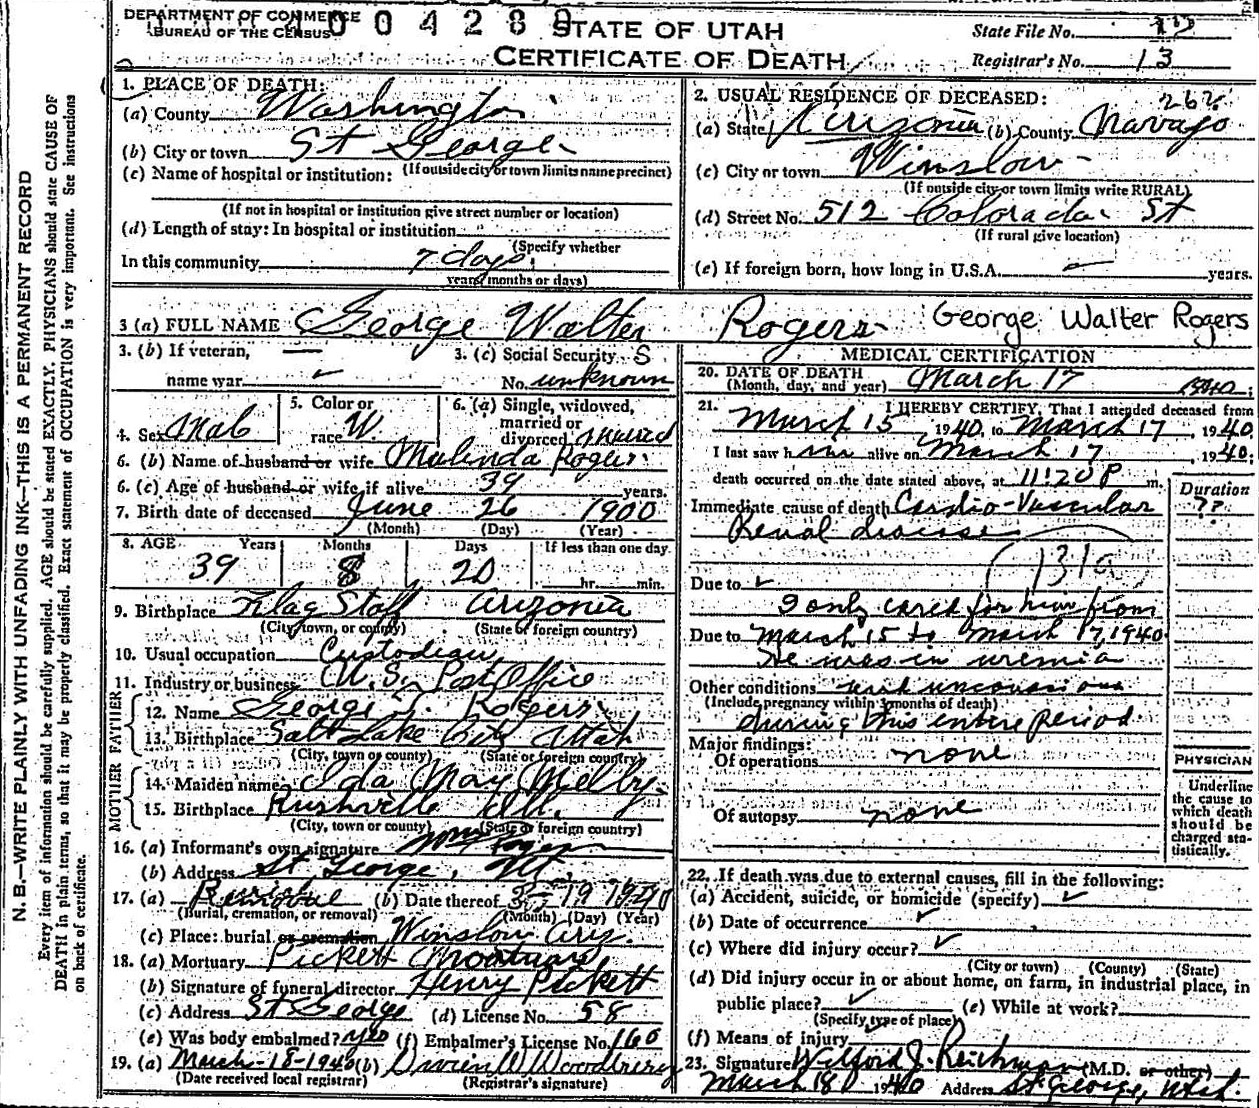 DEPARTMENT OF COMMERCE
BUREAU OF THE CENSUS
004289
STATE OF UTAH
CERTIFICATE OF DEATH
State File No.
Registrar's No. 13
1. PLACE OF DEATH:
(a) County Washington
(b) City or town St George
(If outside city or town limits name precinct)
(c) Name of hospital or institution:
(If not in hospital or institution give street number or location)
(d) Length of stay: In hospital or institution
(Specify whether
In this community 7 days
years, months or days)
2. USUAL RESIDENCE OF DECEASED:
(a) State Arizonia (b) County Navajo
(c) City or town Winslow
(If outside city or town limits write RURAL)
(d) Street No. 512 Colorado St
(If rural give location)
(e) If foreign born, how long in U.S.A. — years.
3 (a) FULL NAME George Walter Rogers George Walter Rogers
3. (b) If veteran, —
name war
3. (c) Social Security S
No. unknown
4. Sex Male
5. Color or
race W.
6. (a) Single, widowed,
married or
divorced Married
6. (b) Name of husband or wife Malinda Rogers
6. (c) Age of husband or wife if alive 39 years.
7. Birth date of deceased June 26 1900
(Month) (Day) (Year)
8. AGE Years Months Days If less than one day
39 8 20 hr. min.
9. Birthplace Flag Staff Arizonia
(City, town, or county) (State or foreign country)
10. Usual occupation Custodian
11. Industry or business U.S. Post Office
FATHER
12. Name George J. Rogers
13. Birthplace Salt Lake City Utah
(City, town or county) (State or foreign country)
MOTHER
14. Maiden name Ida May Melby
15. Birthplace Rushville Ill.
(City, town or county) (State or foreign country)
16. (a) Informant's own signature
(b) Address St George, Ut
17. (a) Removal (b) Date thereof 3 19 1940
(Burial, cremation, or removal) (Month) (Day) (Year)
(c) Place: burial or cremation Winslow Ariz.
18. (a) Mortuary Pickett Mortuary
(b) Signature of funeral director Henry Pickett
(c) Address St George (d) License No. 58
(e) Was body embalmed? yes (f) Embalmer's License No. 160
19. (a) March-18-1940 (b)
(Date received local registrar) (Registrar's signature)
MEDICAL CERTIFICATION
20. DATE OF DEATH
(Month, day, and year) March 17 1940
21. I HEREBY CERTIFY, That I attended deceased from
March 15, 1940, to March 17, 1940
I last saw him alive on March 17, 1940;
death occurred on the date stated above, at 11:20 P m.
Duration
??
Immediate cause of death Cardio-Vascular
Renal disease
131a
Due to
I only cared for him from
Due to March 15 to March 17, 1940
He was in uremia
Other conditions and unconsious
(Include pregnancy within 3 months of death)
during this entire period
Major findings:
Of operations none
Of autopsy none
PHYSICIAN
Underline
the cause to
which death
should be
charged sta-
tistically.
22. If death was due to external causes, fill in the following:
(a) Accident, suicide, or homicide (specify)
(b) Date of occurrence
(c) Where did injury occur?
(City or town) (County) (State)
(d) Did injury occur in or about home, on farm, in industrial place, in
public place? (e) While at work?
(Specify type of place)
(f) Means of injury
23. Signature Wilford J. Reichman (M.D. or other)
March 18 1940 Address St George, Utah.
N. B.—WRITE PLAINLY WITH UNFADING INK—THIS IS A PERMANENT RECORD
Every item of information should be carefully supplied. AGE should be stated EXACTLY. PHYSICIANS should state CAUSE OF
DEATH in plain terms, so that it may be properly classified. Exact statement of OCCUPATION is very important. See instructions
on back of certificate.